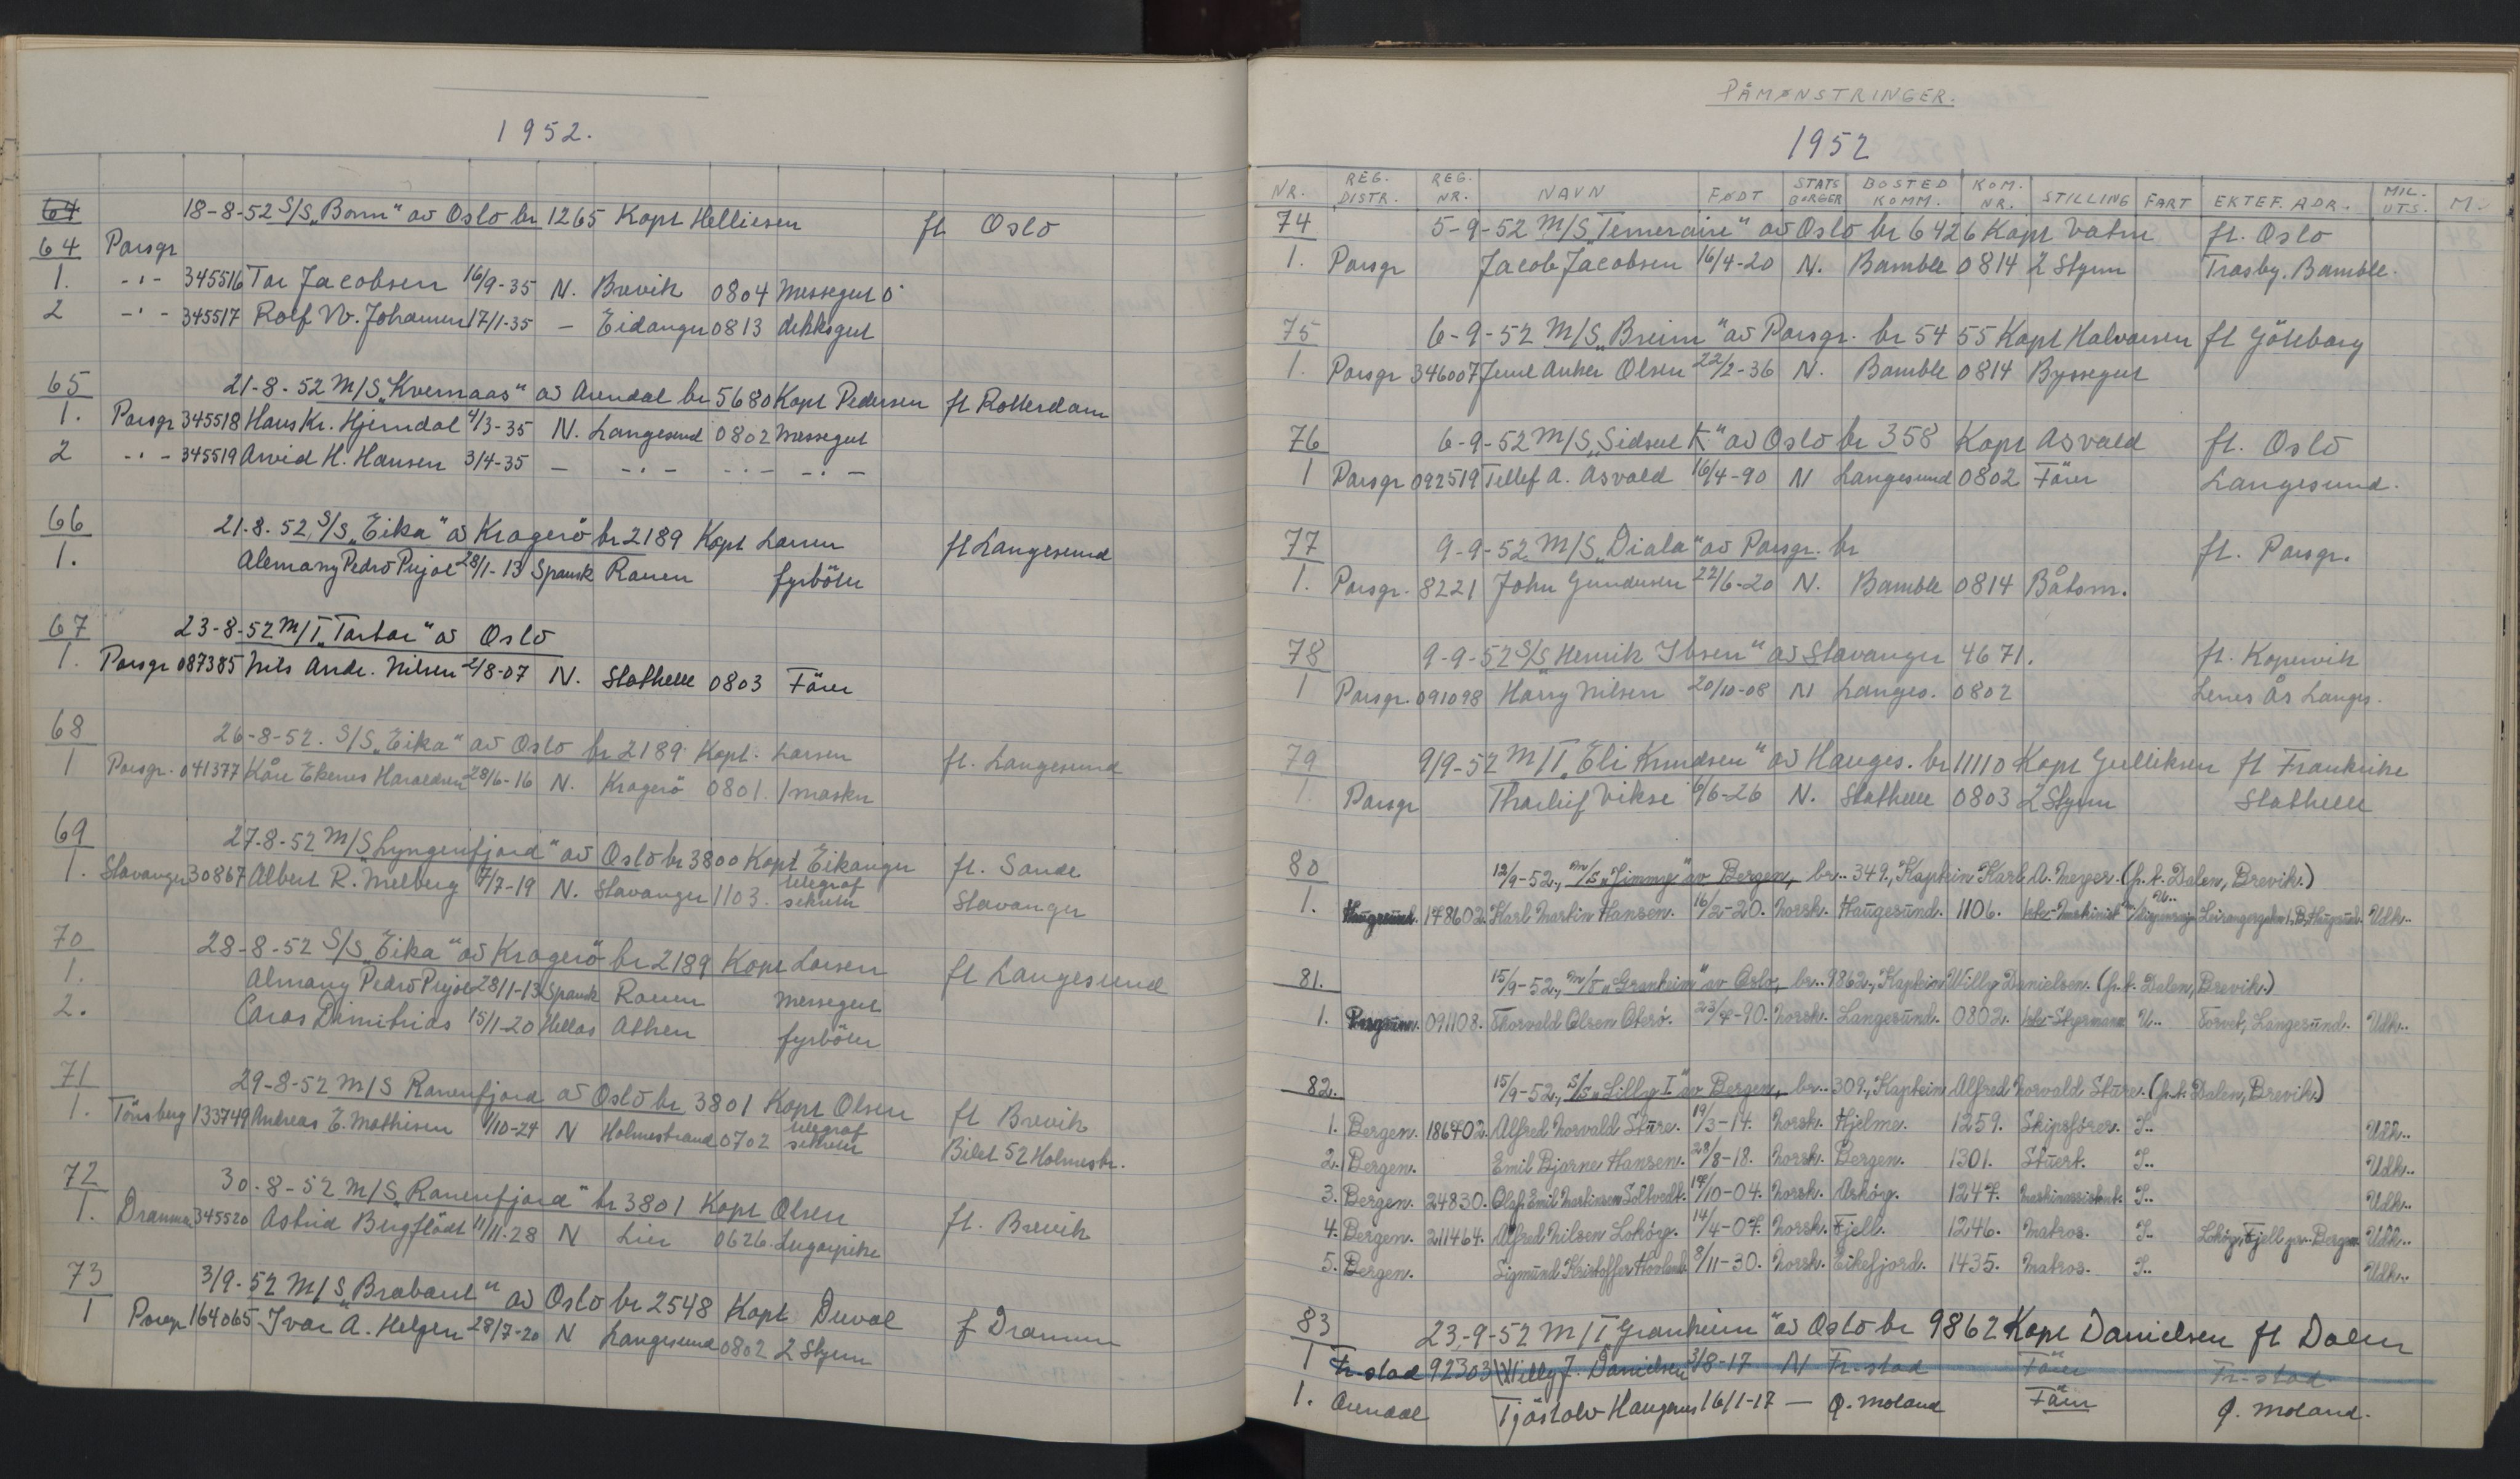 1952.
64
18-8-52 S/S „Bonn" av Oslo br 1265 Kapt Helliesen ft Oslo
64 Porsgr
1. -"- 345516 Tor Jacobsen 16/9-35 N. Brevik 0804 Messegut
2 -"- 345517 Rolf W. Johansen 17/1-35 – Eidanger 0813 dekksgut
65 21-8-52 M/S „Kvernaas" av Arendal br 5680 Kapt Pedersen ft Rotterdam
1. Porsgr 345518 Hans Kr. Hjemdal 4/3-35 N. Langesund 0802 Messegut
2 -"- 345519 Arvid H. Hansen 3/4-35 – -"- -"- -"-
66 21.8.52 S/S „Eika" av Kragerö br 2189 Kapt Larsen ft Langesund
1. Alemany Pedro Pujol 28/1-13 Spansk Rouen fyrböter
67 23-8-52 M/T „Tartar" av Oslo
1. Porsgr 087385 Nils Andr. Nilsen 2/8-07 N. Stathelle 0803 Förer
68 26-8-52. S/S „Eika" av Oslo br 2189 Kapt. Larsen ft. Langesund
1 Porsgr. 041377 Kåre Ekenes Haraldsen 28/6-16 N. Kragerö 0801. 1 maskn
69 27-8-52 M/S Lyngenfjord" av Oslo br 3800 Kapt Eikanger ft. Sande
1. Stavanger 30867 Albert R. Melberg 7/7-19 N. Stavanger 1103. telegraf Stavanger
70 28-8-52 S/S „Eika" av Kragerö br 2189 Kapt Larsen ft Langesund
1. Almany Pedro Pujol 28/1-13 Spansk Rouen Messegut
2. Caras Dimitrios 15/1-20 Hellas Athen fyrböter
71 29-8-52 M/S Ranenfjord av Oslo br 3801 Kapt Olsen ft Brevik
1. Tönsberg 133749 Andreas E. Mathisen 1/10-24 N Holmestrand 0702 telegraf 52 Holmestr.
72 30-8-52 M/S „Ranenfjord" br 3801 Kapt Olsen ft. Brevik
1. Drammen 345520 Astrid Bergflödt 11/11-28 N Lier 0626 Lugarpike
73 3/9-52 M/S „Brabant" av Oslo br 2548 Kapt Duval f Drammen
1 Porsgr 164065 Ivar A. Helgen 28/7-20 N Langesund 0802 2 Styrm
PÅMØNSTRINGER.
1952
NR. REG. DISTR. REG. NR. NAVN FØDT STATS BORGER BOSTED KOMM. KOM. NR. STILLING FART EKTEF. ADR. MIL. UTS. M.
74 5-9-52 M/S „Temeraire" av Oslo br 6426 Kapt Vatm ft. Oslo
1. Porsgr Jacob Jacobsen 16/4-20 N. Bamble 0814 2 Styrm Trosby. Bamble.
75 6-9-52 M/S „Breim" av Porsgr. br 5455 Kapt Halvorsen ft Göteborg
1. Porsgr 346007 Anker Olsen 22/2-36 N. Bamble 0814 Byssegut
76 6-9-52 M/S „Sidsel K" av Oslo br 358 Kapt Asvald ft. Oslo
1 Porsgr 092519 Tellef A. Asvald 16/4-90 N Langesund 0802 Förer Langesund.
77 9-9-52 M/S „Diala" av Porsgr. br ft. Porsgr.
1. Porsgr. 8221 John Gundersen 22/6-20 N. Bamble 0814 Båtsm.
78 9-9-52 S/S Henrik Ibsen" av Stavanger 4671. ft. Kopervik
1 Porsgr. 091098 Harry Nilsen 20/10-08 N Langes. 0802 Ås Langes.
79 9/9-52 M/T „Eli Knudsen" av Hauges. br 11110 Kapt Gulliksen ft Frankrike
1. Porsgr Thorleif Vikse 6/6-26 N. Stathelle 0803 2 Styrm Stathelle
80 12/9-52., M/S „Jimmy" av Bergen, br.. 349., Kaptein Karl A. Meyer. (p.t. Dalen, Brevik.)
1. Haugesund. 148602. Karl Martin Hansen. 16/2-20. Norsk. Haugesund. 1106. Udk..
81. 15/9-52., M/T „Granheim" av Oslo, br.. 9862., Kaptein Willy Danielsen. (p.t. Dalen, Brevik.)
1. Porsgrunn. 091108. Thorvald Olsen Oterö. 23/4-90. Norsk. Langesund. 0802. Styrmann U.. Torvet, Langesund. Udk..
82. 15/9-52., S/S „Lilly I" av Bergen, br.. 309., Kaptein Alfred Norvald Stüre. (p.t. Dalen, Brevik.)
1. Bergen. 186402. Alfred Norvald Stüre. 19/3-14. Norsk. Hjelme. 1259. Skipsförer. I.. Udk..
2. Bergen. Emil Bjarne Hansen. 28/8-18. Norsk. Bergen. 1301. Stuert. I.. Udk..
3. Bergen. 24830. Olaf Emil Martinsen Soltvedt. 14/10-04. Norsk. Askög. 1247. Maskinassistent. I.. Udk..
4. Bergen. 211464. Alfred Nilsen Lokög. 14/4-07. Norsk. Fjell. 1246. Matros. I.. Lokög, Fjell pr. Bergen. Udk..
5. Bergen. Sigmund Kristoffer Hovland 8/11-30. Norsk. Eikefjord. 1435. Matros. I.. Udk..
83 23-9-52 M/T „Granheim" av Oslo br 9862 Kapt Danielsen ft Dalen
1 Fr-stad 92303 Willy J. Danielsen 3/8-17 N Fr-stad Förer Fr-stad
1. Arendal Tjöstolv Haugenes 16/1-17 – Ö. Moland Förer Ö. Moland.